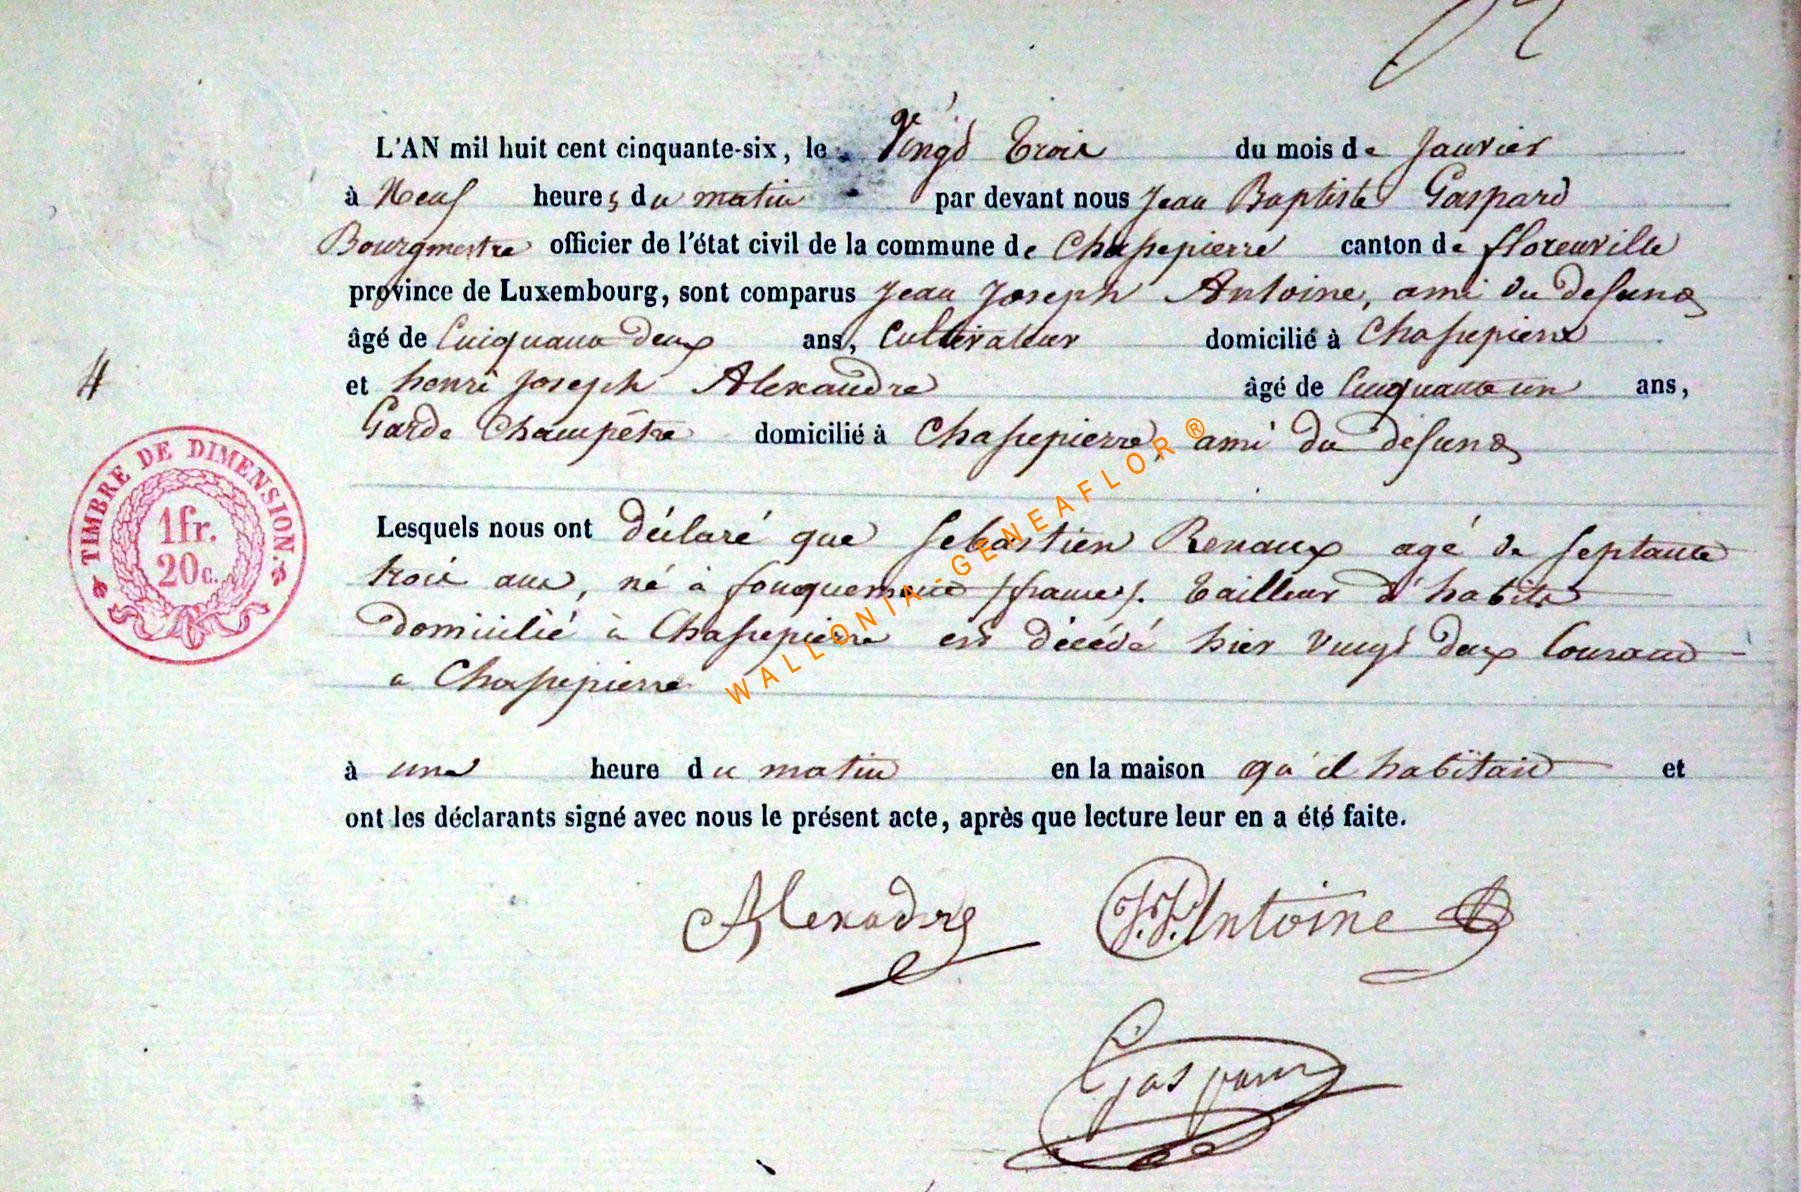 L'AN mil huit cent cinquante-six, le Vingt Trois du mois de Janvier
à Neuf heures du matin par devant nous Jean Baptiste Gaspard
Bourgmestre officier de l'état civil de la commune de Chassepierre canton de florenville
province de Luxembourg, sont comparus Jean Joseph Antoine, ami du defunt
âgé de Cinquante deux ans, Cultivateur domicilié à Chassepierre
et henri joseph Alexandre âgé de Cinquante un ans,
Garde Champêtre domicilié à Chassepierre, ami du défunt
Lesquels nous ont déclaré que Sebastien Renaux agé de Septante
trois ans, né à (france). tailleur d'habits
domicilié à Chassepierre est décédé hier vingt deux Courant
a Chassepierre
à une heure du matin en la maison qu'il habitait et
ont les déclarants signé avec nous le présent acte, après que lecture leur en a été faite.
Alexandre J.J. Antoine
Gaspard
4
TIMBRE DE DIMENSION.
1fr.
20c.
WALLONIA-GENEAFLOR ®